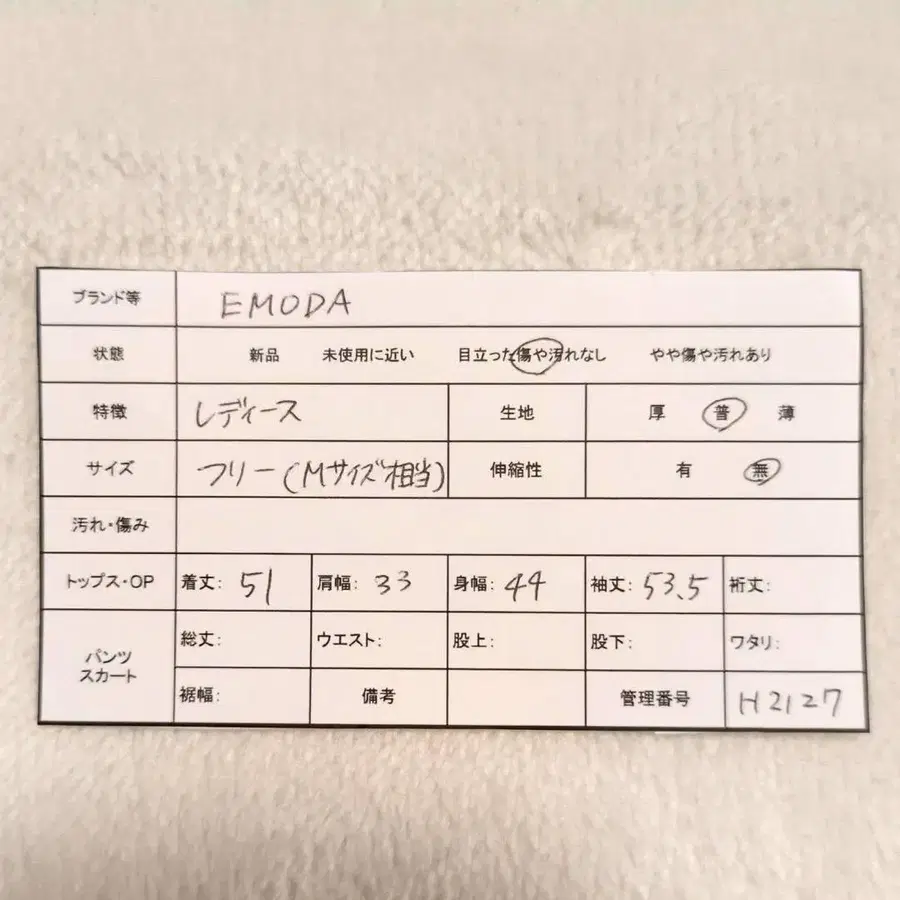 ブランド等 EMODA
状態 新品 未使用に近い 目立った傷や汚れなし やや傷や汚れあり
特徴 レディース 生地 厚 普 薄
サイズ フリー(Mサイズ相当) 伸縮性 有 無
汚れ・傷み
トップス・OP 着丈: 51 肩幅: 33 身幅: 44 袖丈: 53.5 裄丈:
パンツ
スカート
総丈: ウエスト: 股上: 股下: ワタリ:
裾幅: 備考 管理番号 H2127